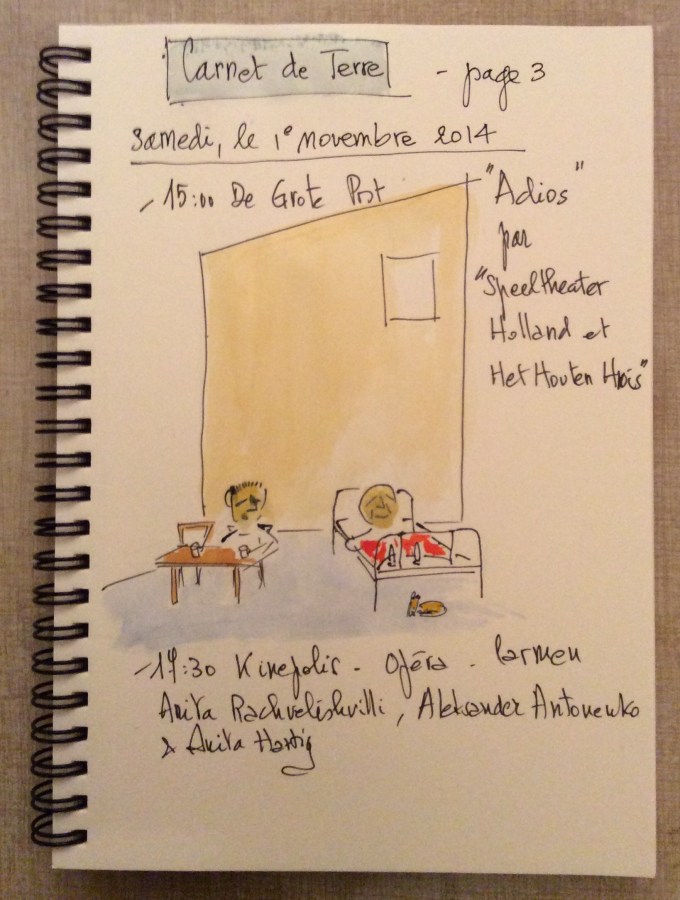 Carnet de Terre - page 3
Samedi, le 1e novembre 2014
15:00 De Grote Post
"Adios"
par
"Speeltheater
Holland et
Het Houten Huis"
17:30 Kinepolis - Opéra - Carmen
Anita Rachvelishvilli, Aleksander Antonenko
& Anita Hartig